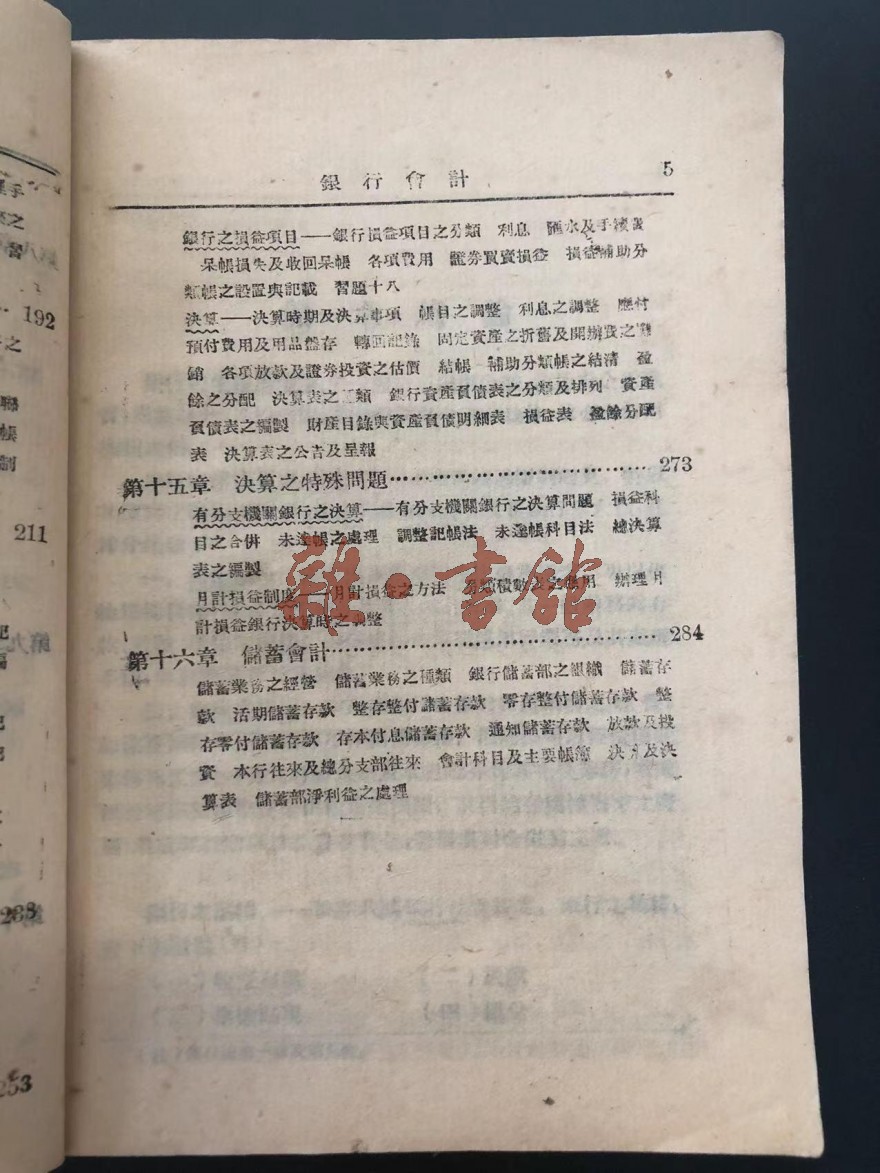 銀行會計 5
銀行之損益項目——銀行損益項目之分類 利息 匯水及手續費
呆帳損失及收回呆帳 各項費用 證券買賣損益 損益補助分
類帳之設置與記載 習題十八
決算——決算時期及決算事項 帳目之調整 利息之調整 應付
預付費用及用品盤存 轉回記錄 固定資產之折舊及開辦費之攤
銷 各項放款及證券投資之估價 結帳 補助分類帳之結清 盈
餘之分配 決算表之種類 銀行資產負債表之分類及排列 資產
負債表之編製 財產目錄與資產負債明細表 損益表 盈餘分配
表 決算表之公告及呈報
第十五章 決算之特殊問題 273
有分支機關銀行之決算——有分支機關銀行之決算問題 損益科
目之合併 未達帳之處理 調整記帳法 未達帳科目法 總決算
表之編製
月計損益制度——月計損益之方法 分類積數表之應用 辦理月
計損益銀行決算時之調整
第十六章 儲蓄會計 284
儲蓄業務之經營 儲蓄業務之種類 銀行儲蓄部之組織 儲蓄存
款 活期儲蓄存款 整存整付儲蓄存款 零存整付儲蓄存款 整
存零付儲蓄存款 存本付息儲蓄存款 通知儲蓄存款 放款及投
資 本行往來及總分支部往來 會計科目及主要帳簿 決算及決
算表 儲蓄部淨利益之處理
192
211
253
雜·書館